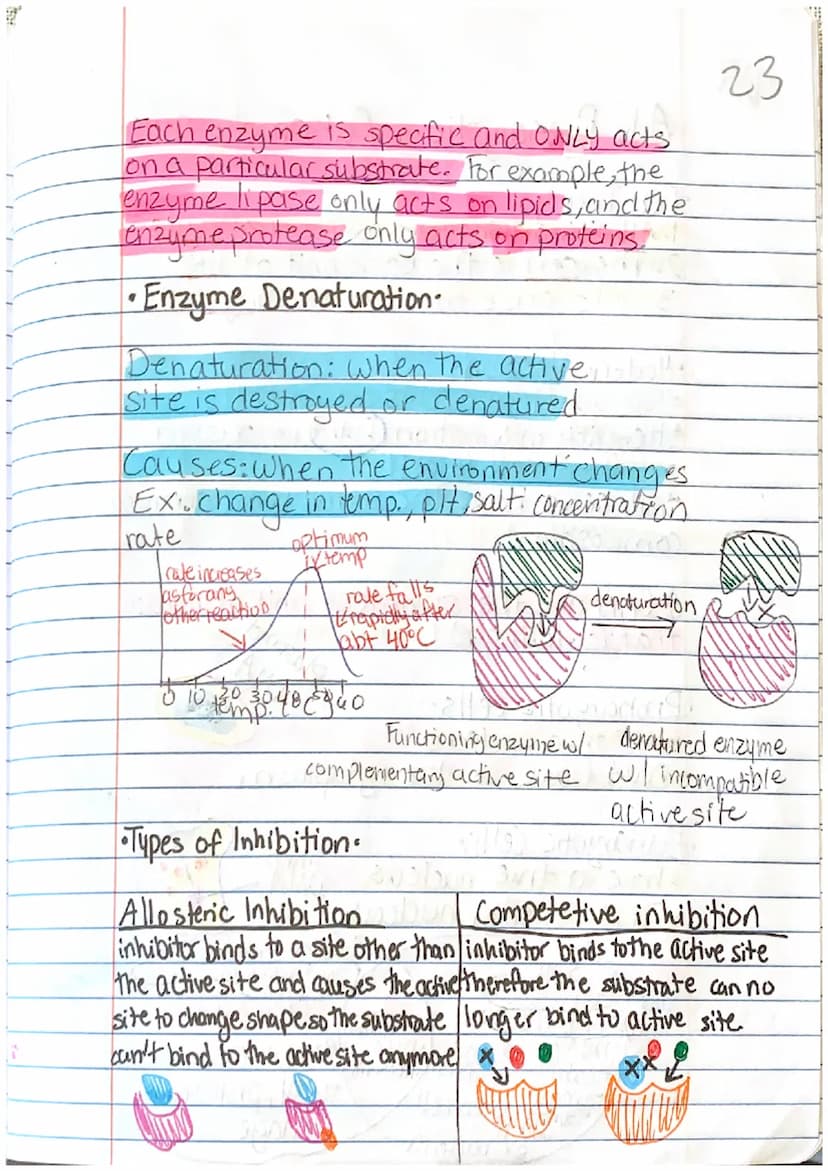 23
Each enzyme is specific and ONLY acts
on a particular substrate. For example, the
enzyme lipase only acts on lipids, and the
enzyme protease only acts on proteins.
• Enzyme Denaturation •
Denaturation: when the active
site is destroyed or denatured
Causes: when the environment changes
Ex: change in temp., pH, salt concentration
rate
optimum
temp
rate increases
as for any
other reaction
rate falls
rapidly after
abt 40°C
0 10 20 30 40
temp.
denaturation
Functioning enzyme w/
complementary active site
denatured enzyme
w/ incompatible
active site
• Types of Inhibition •
Allosteric Inhibition
inhibitor binds to a site other than
the active site and causes the active
site to change shape so the substrate
can't bind to the active site anymore
Competetive inhibition
inhibitor binds to the active site
therefore the substrate can no
longer bind to active site